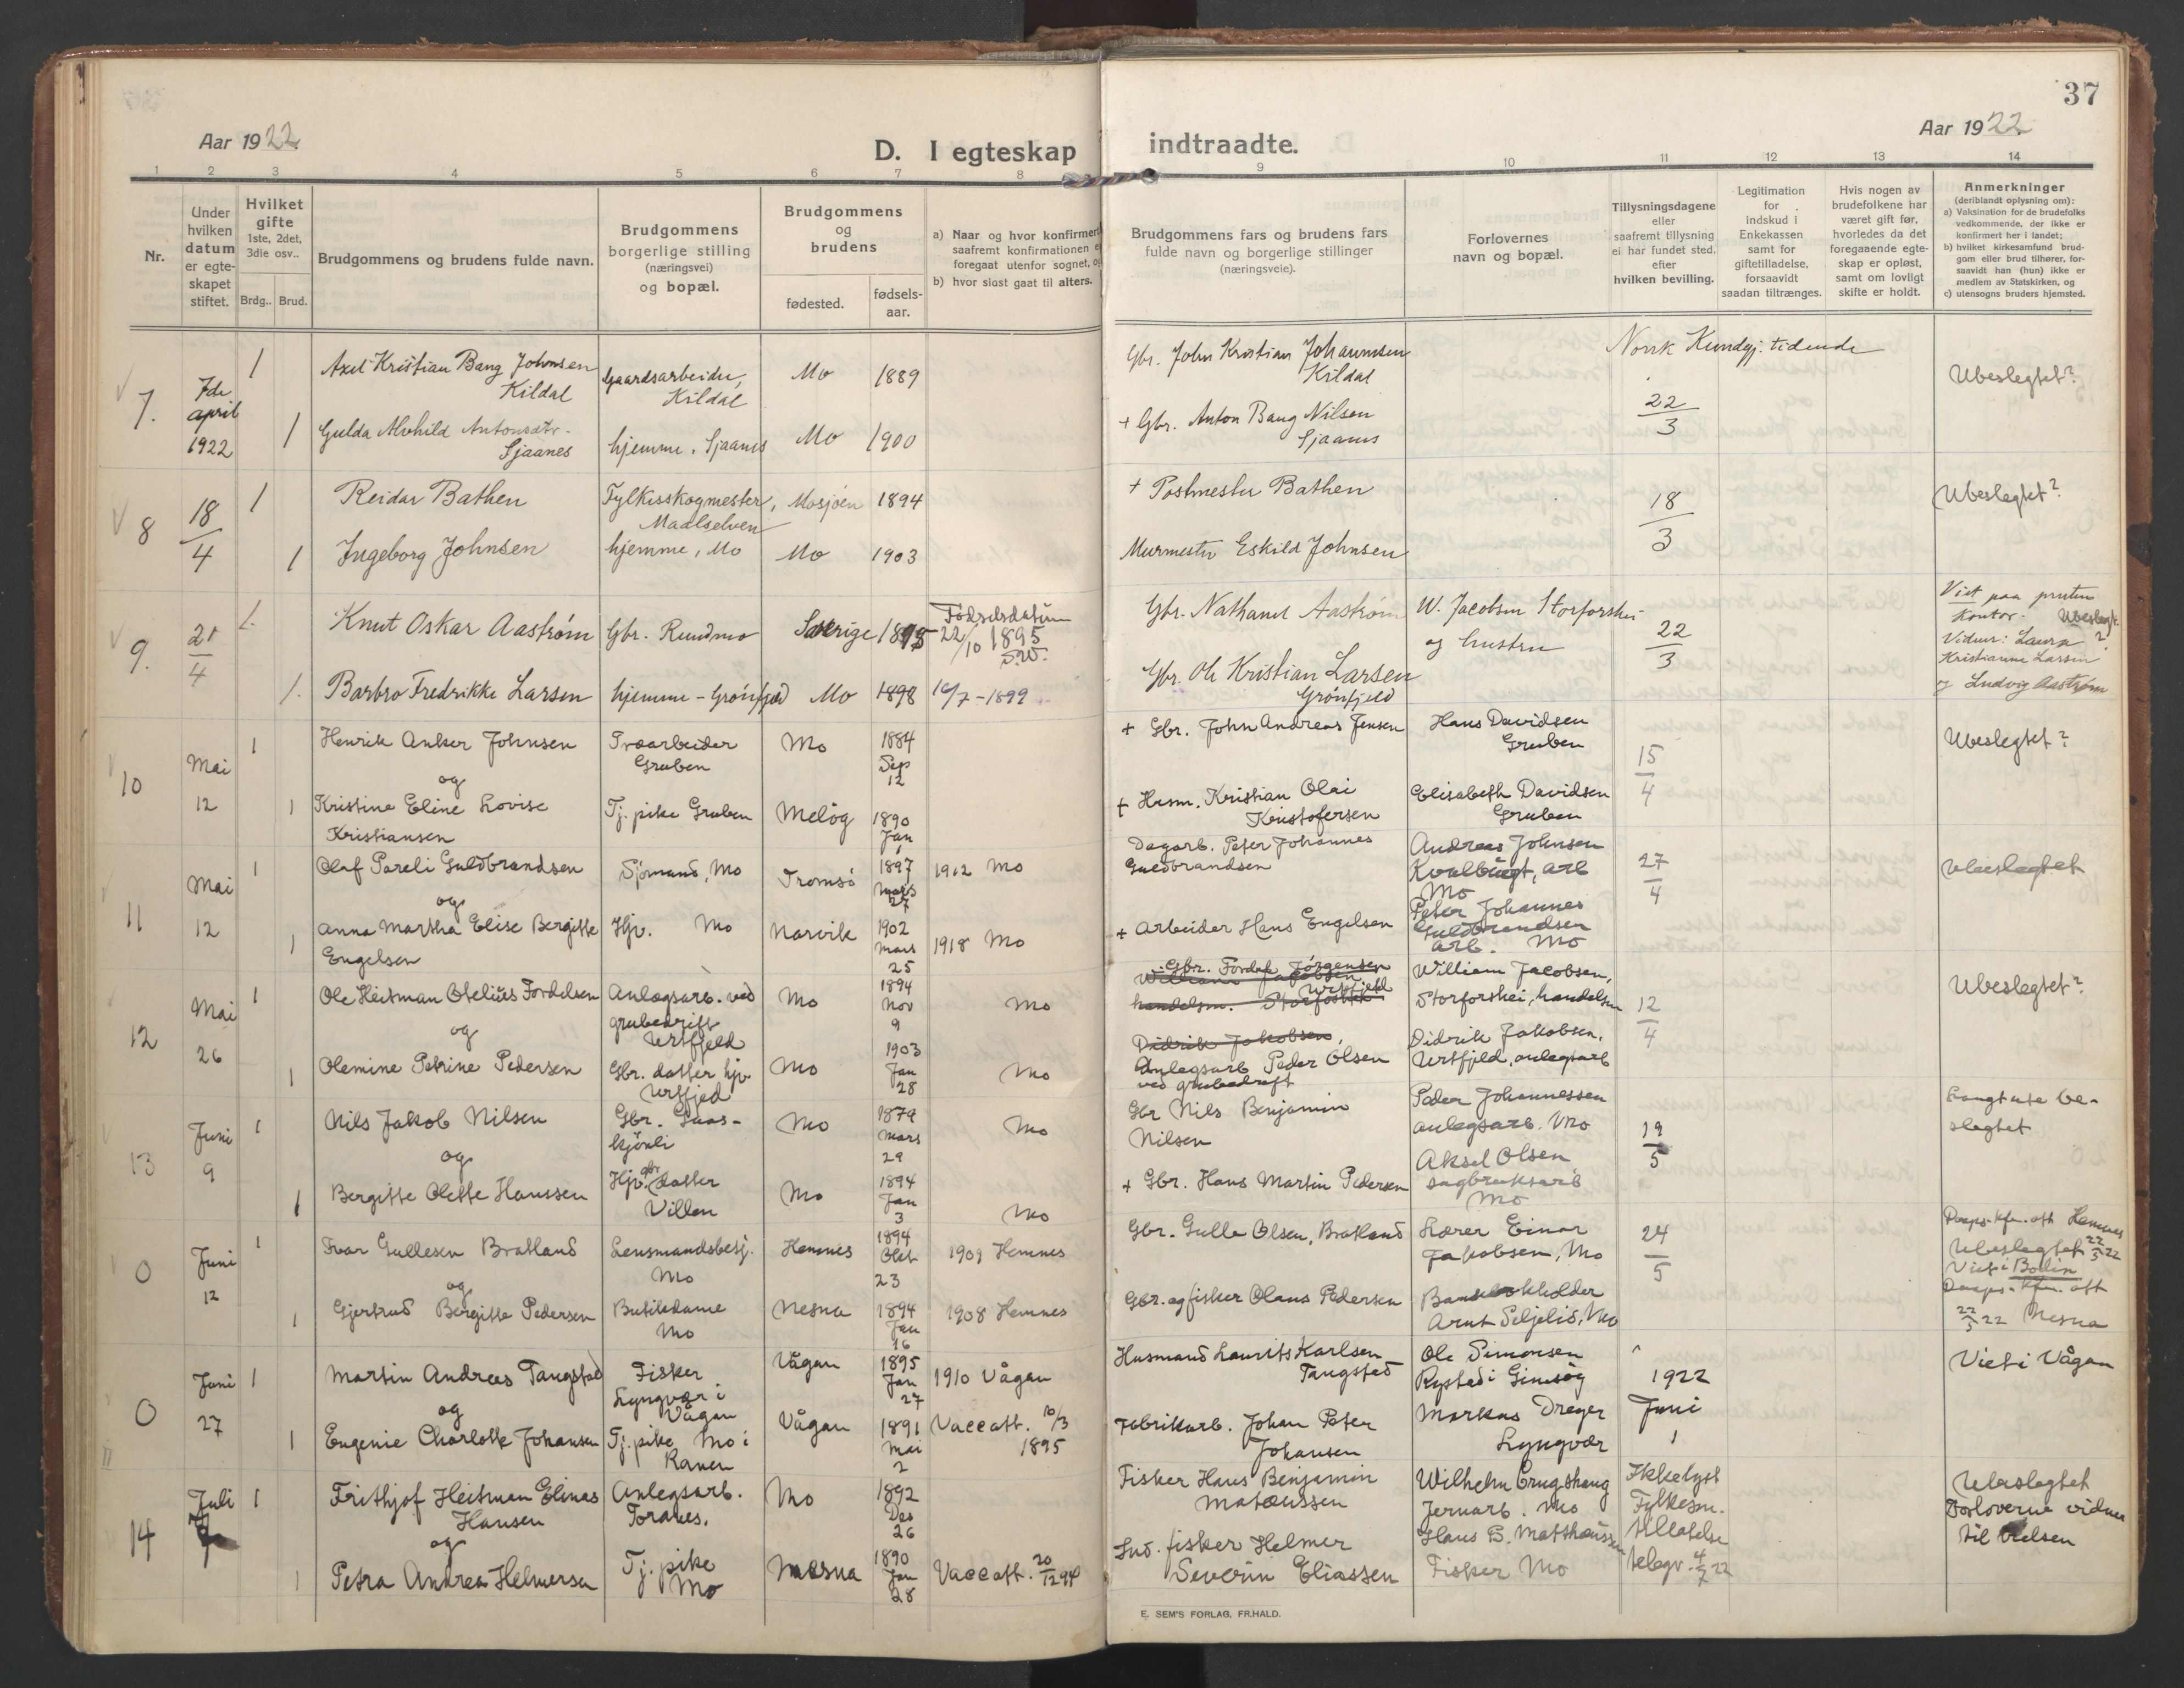 37
Aar 1922
Aar 1922
D. I egteskap indtraadte.
1 2 3 4 5 6 7 8 9 10 11 12 13 14
Nr.
Under hvilken datum er egte-skapet stiftet.
Hvilket gifte 1ste, 2det, 3die osv..
Brdg.. Brud.
Brudgommens og brudens fulde navn.
Brudgommens borgerlige stilling (næringsvei) og bopæl.
Brudgommens og brudens
fødested.
fødsels-aar.
a) Naar og hvor konfirmert
saafremt konfirmationen
foregaat utenfor sognet,
b) hvor sidst gaat til alters.
Brudgommens fars og brudens fars
fulde navn og borgerlige stillinger
(næringsveie).
Forlovernes
navn og bopæl.
Tillysningsdagene
eller
saafremt tillysning
ei har fundet sted.
efter
hvilken bevilling.
Legitimation
for
indskud i
Enkekassen
samt for
giftetilladelse,
forsaavidt
saadan tiltrænges.
Hvis nogen av
brudefolkene har
været gift før,
hvorledes da det
foregaaende egte-
skap er opløst,
samt om lovligt
skifte er holdt.
Anmerkninger
(deriblandt oplysning om):
a) Vaksination for de brudefolks
vedkommende, der ikke er
konfirmert her i landet;
b) hvilket kirkesamfund brud-
gom eller brud tilhører, for-
saavidt han (hun) ikke er
medlem av Statskirken, og
c) utensogns bruders hjemsted.
7. 7de april 1922
1 Axel Kristian Bang Johnsen Kildal
Gaardsarbeider, Kildal
Mo 1889
Gbr. John Kristian Johannsen Kildal
Norsk Kundgj. tidende
22/3
Ubeslegtet?
1 Gulda Alvhild Antonsdtr. Sjaanes
hjemme, Sjaanes
Mo 1900
+ Gbr. Anton Bang Nilsen Sjaanes
8 18/4
1 Reidar Bathen
Fylkesskogmester, Maalselven
Mosjøen 1894
+ Postmester Bathen
18/3
Ubeslegtet?
1 Ingeborg Johnsen
hjemme, Mo
Mo 1903
Murmester Eskild Johnsen
9. 21/4
1. Knut Oskar Aastrøm
Gbr. Ruudmo
Sverige 1895
Fødselsdatum 22/10 1895
Gbr. Nathanel Aastrøm
W. Jacobsen Storforshei og hustru
22/3
Viet paa prestens Kontor. Ubeslegt.?
Vidner: Laura Kristianne Larsen og Ludvig Aastrøm
1. Barbro Fredrikke Larsen
hjemme - Grønfjeld
Mo 1898
16/7 - 1899
Gbr. Ole Kristian Larsen Grønfjeld
10 Mai 12
1 Henrik Anker Johnsen
Gruben
Mo
1884 Sep 12
+ Gbr. John Andreas Jensen
Hans Davidsen Gruben
15/4
Ubeslegtet?
og
1 Kristine Eline Lovise Kristiansen
Tj. pike Gruben
Meløy
1890 Jan
+ Husm. Kristian Olai Kristofersen
Elisabeth Davidsen Gruben
11 Mai 12
1 Olaf Pareli Guldbrandsen
Sjømand, Mo
Tromsø
1897 Mars 27
1912 Mo
Dagarb. Peter Johannes Guldbrandsen
Andreas Johnsen arb Mo
27/4
Ubeslegtet
og
1 Anna Martha Elise Bergitte Engelsen
Hjv. Mo
Narvik
1902 Mars 25
1918 Mo
+ Arbeider Hans Engelsen
Peter Johannes Guldbrandsen arb. Mo
12 Mai 26
1 Ole Heitman Otelius Fordelsen
Anlægsarb. ved grubedrift Urtfjeld
Mo
1894 Nov 9
Mo
Gbr. Fordel Jørgensen Urtfjeld
William Jacobsen handelsm. Storforshei
William Jacobsen, Storforshei, handelsm
12/4
Ubeslegtet?
og
1 Olemine Petrine Pedersen
Gbr. datter hjv. Urtfjed
Mo
1903 Jan 28
Mo
Didrik Jakobsen,
Anlegsarb Peder Olsen ved grubedrift
Didrik Jakobsen, Urtfjeld, anlegsarb
13 Juni 9
1 Nils Jakob Nilsen
Gbr. Guas-kjønli
Mo
1879 Mars 29
Mo
Gbr Nils Benjamin Nilsen
Peder Johannessen anlegsarb. Mo
19/5
Langt ute be-slegtet
og
1 Bergitte Olette Hanssen
Hjv. gbr datter Villen
Mo
1894 Jan 3
Mo
+ Gbr. Hans Martin Pedersen
Aksel Olsen sagbruksarb Mo
0 Juni 12
1 Ivar Gullesen Bratland
Lensmandsbetj. Mo
Hemnes
1894 Okt 23
1909 Hemnes
Gbr. Gulle Olsen, Bratland
Lærer Einar Jakobsen, Mo
24/5
Daaps. kfm. att Hemnes 22/5 22
Ubeslegtet
Viet i Bodin
og
1 Gjertrud Bergitte Pedersen
Butikdame Mo
Nesna
1894 Jan 16
1908 Hemnes
Gbr. og fisker Olaus Pedersen
Arnt Seljelid, Mo
Daaps. kfm. att 22/5 22 Nesna
0 Juni 27
1 Martin Andreas Tangstad
Fisker Lyngvær i Vågan
Vågan
1895 Jan 27
1910 Vågan
Husmand Laurits Karlsen Tangstad
Ole Simonsen Rystad i Gimsøy
1922 Juni 1
Viet i Vågan
og
1 Eugenie Charlotte Johansen
Tj. pike Mo i Ranen
Vågan
1891 Mai 2
Vacc att. 10/3 1895
Fabrikarb. Johan Peter Johansen
Markus Dreyer Lyngvær
14 Juli 7
1 Frithjof Heitman Elinas Hansen
Anlegsarb. Toranes.
Mo
1892 Des 26
Fisker Hans Benjamin Mateussen
Wilhelm Jernarb. Mo
Ikke lyst Fylkesm. tillatelse telegr. 4/7 22
Ubeslegtet
Forloverne vidner til vielsen
og
1 Petra Andrea Helmersen
Tj. pike Mo
Nesna
1890 Jan 28
Vacc att. 20/12 94
Ind. fisker Helmer Severin Eliassen
Hans B. Matthæussen Fisker Mo
E. SEM'S FORLAG, FR.HALD.